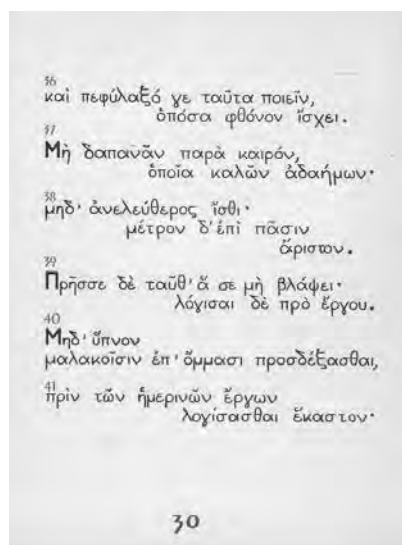 36
καὶ πεφύλαξό γε ταῦτα ποιεῖν,
ὁπόσα φθόνον ἴσχει.
37
Μὴ δαπανᾶν παρὰ καιρόν,
ὁποῖα καλῶν ἀδαήμων·
38
μηδ' ἀνελεύθερος ἴσθι·
μέτρον δ' ἐπὶ πᾶσιν
ἄριστον.
39
Πρῆσσε δὲ ταῦθ' ἅ σε μὴ βλάψει·
λόγισαι δὲ πρὸ ἔργου.
40
Μηδ' ὕπνον
μαλακοῖσιν ἐπ' ὄμμασι προσδέξασθαι,
41
πρὶν τῶν ἡμερινῶν ἔργων
λογίσασθαι ἕκαστον·
30